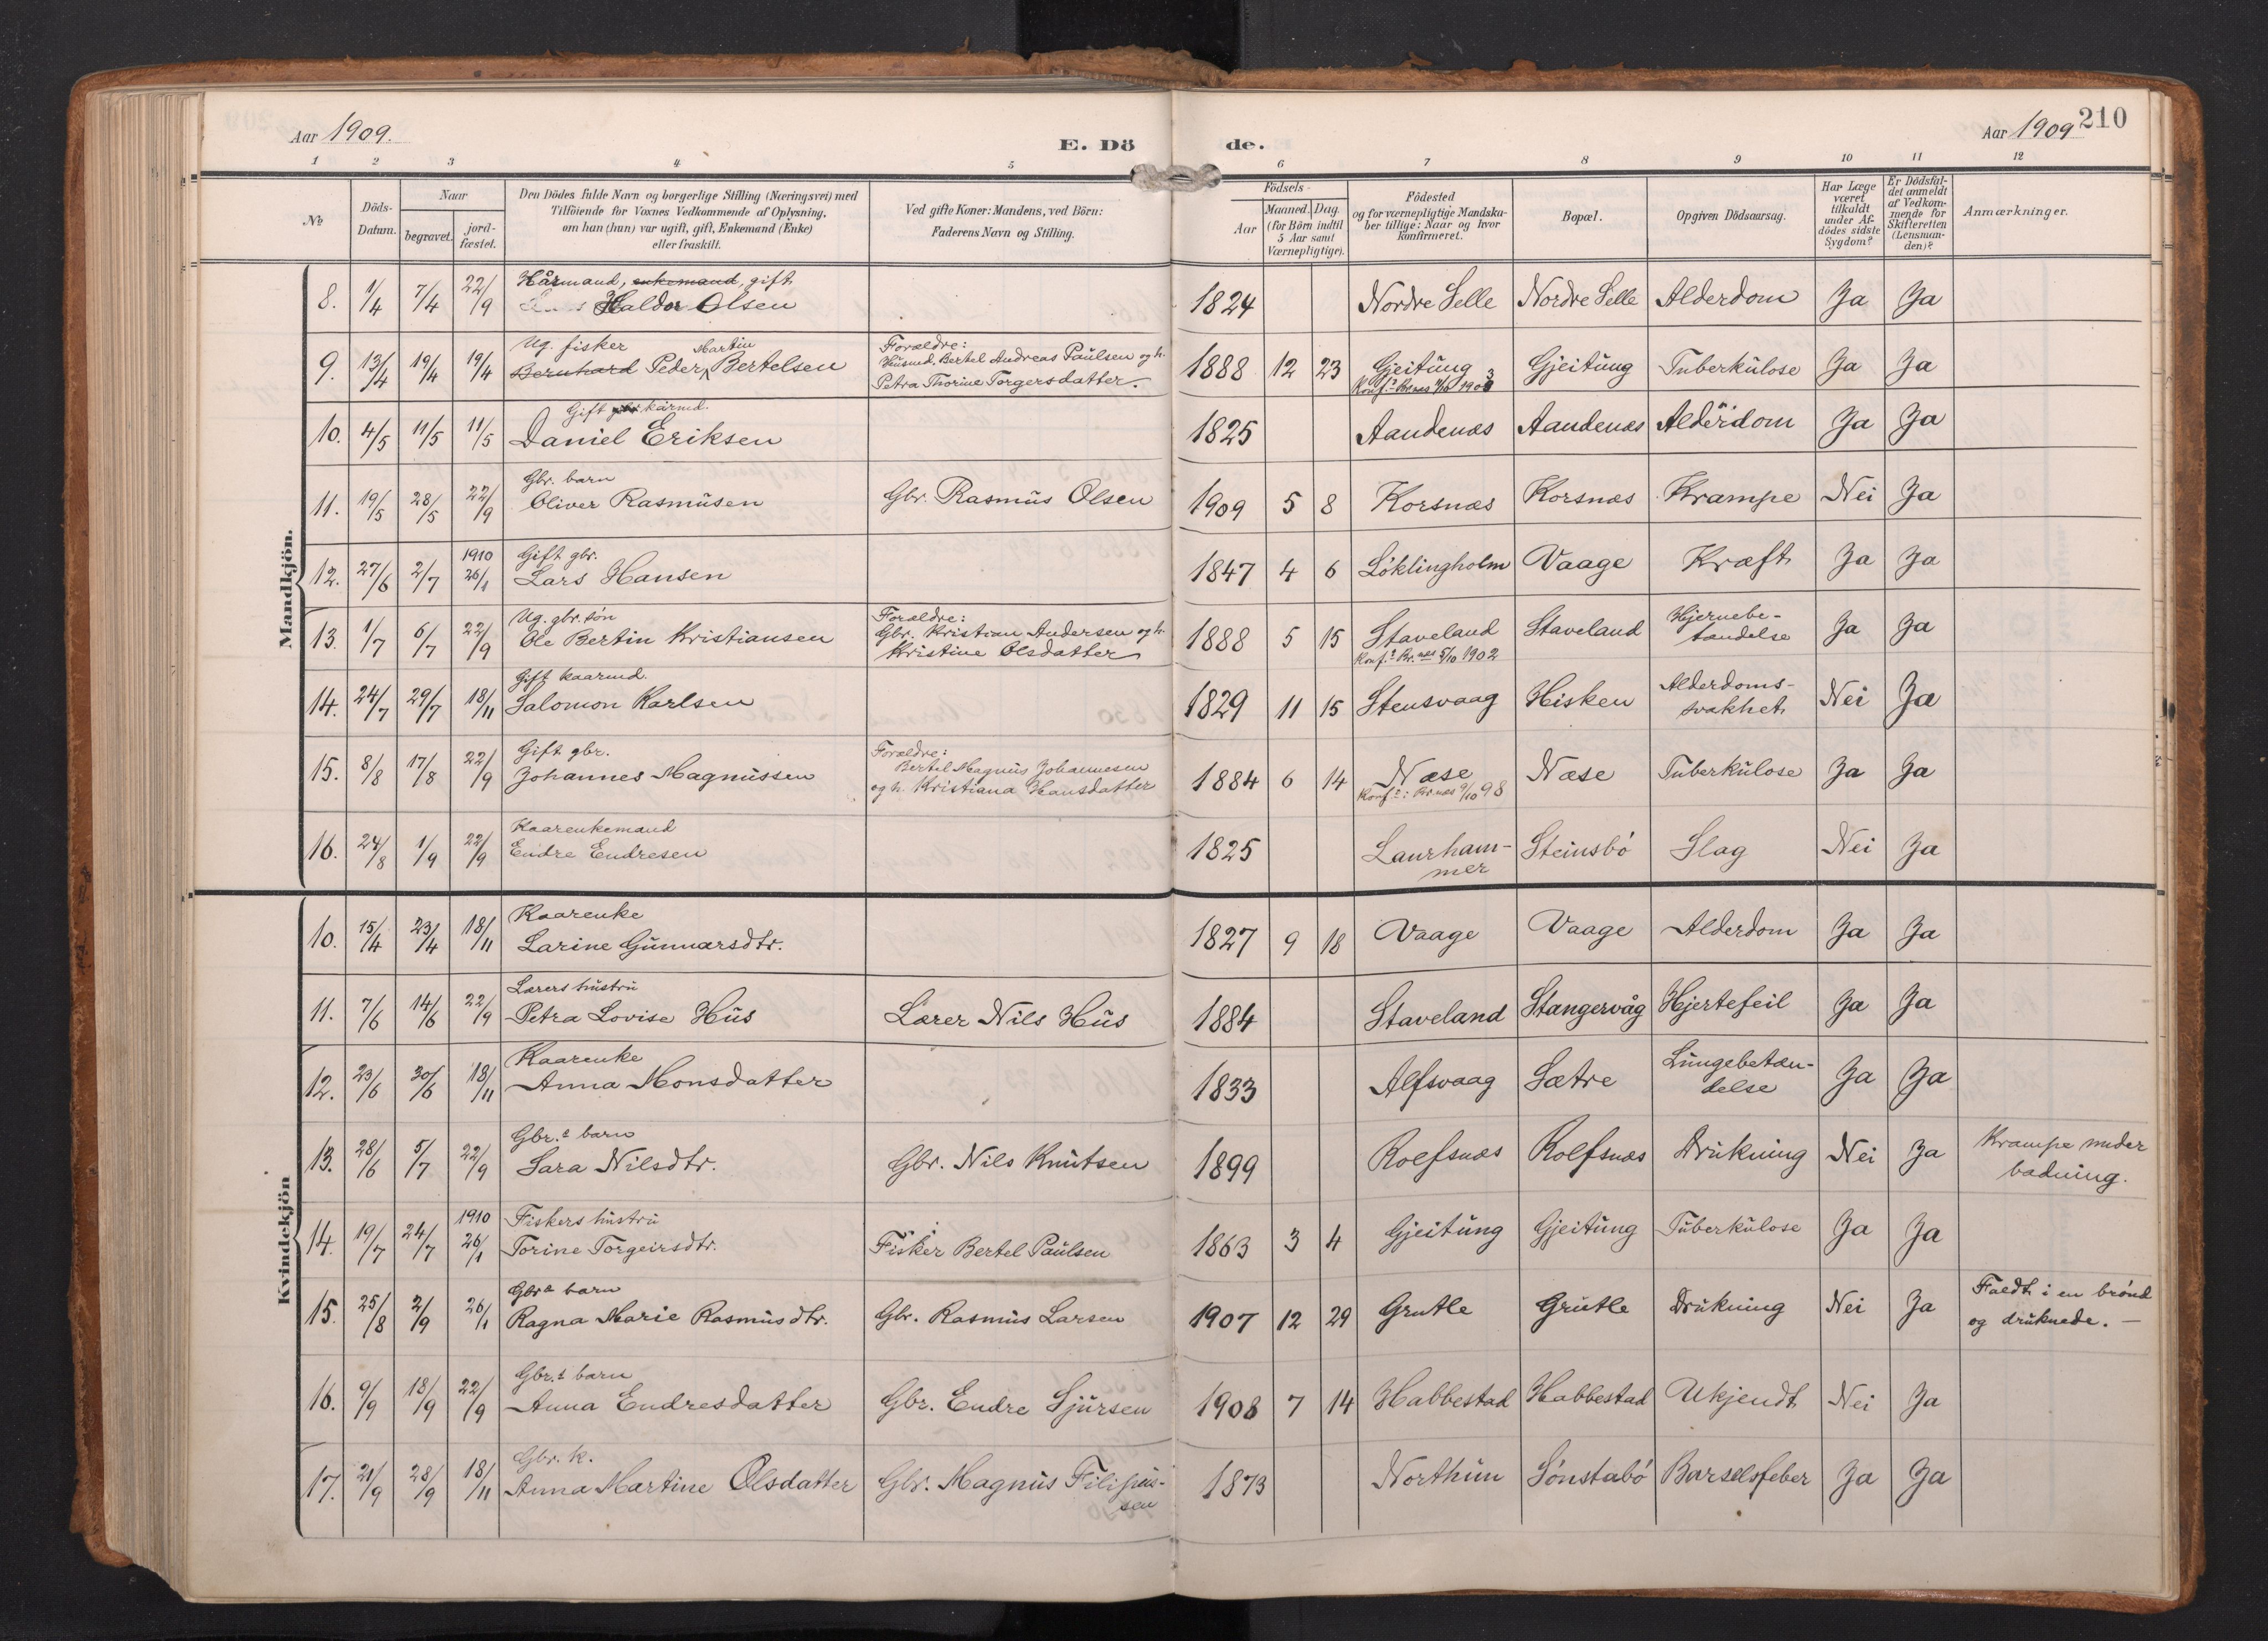 Aar 1909.
E. Döde.
Aar 1909
210
1 2 3 4 5 6 7 8 9 10 11 12
No
Döds-Datum.
Naar
begravet.
jord-fæstet.
Den Dödes fulde Navn og borgerlige Stilling (Næringsvei) med
Tilföiende for Voxnes Vedkommende af Oplysning,
om han (hun) var ugift, gift, Enkemand (Enke)
eller fraskilt.
Ved gifte Koner: Mandens, ved Börn:
Faderens Navn og Stilling.
Födsels-
Aar
Maaned. Dag.
(for Börn indtil
5 Aar samt
Værnepligtige).
Födested
og for værnepligtige Mandska-
ber tillige: Naar og hvor
konfirmeret.
Bopæl.
Opgiven Dödsaarsag.
Har Læge
været
tilkaldt
under Af-
dödes sidste
Sygdom?
Er Dödsfal-
det anmeldt
af Vedkom-
mende for
Skifteretten
(Lensman-
den)?
Anmærkninger.
Mandkjön.
8. 1/4 7/4 22/9 Kårmand, enkemand, gift
Haldor Olsen 1824 Nordre Selle Nordre Selle Alderdom Ja Ja
9. 13/4 19/4 19/4 Ug. fisker Martin
Bernhard Peder Bertelsen
Forældre:
Husmd. Bertel Andreas Paulsen og h.
Petra Thorine Torgersdatter.
1888 12 23 Gjeitung Gjeitung Tuberkulose Ja Ja
10. 4/5 11/5 11/5 Gift kårmd.
Daniel Eriksen 1825 Aandenæs Aandenæs Alderdom Ja Ja
11. 19/5 28/5 22/9 Gbr. barn
Oliver Rasmusen Gbr. Rasmus Olsen 1909 5 8 Korsnæs Korsnæs Krampe Nei Ja
12. 27/6 2/7 1910 26/1 Gift gbr.
Lars Hansen 1847 4 6 Løklingholm Vaage Kræft Ja Ja
13. 1/7 6/7 22/9 Ug. gbr. søn
Ole Bertin Kristiansen
Forældre:
Gbr. Kristian Andersen og h.
Kristine Olsdatter
1888 5 15 Staveland Staveland Hjernebe-
tændelse Ja Ja
Konf.: Br.næs 5/10 1902
14. 24/7 29/7 18/11 Gift kaarmd.
Salomon Karlsen 1829 11 15 Stensvaag Hisken Alderdoms-
svakhet Nei Ja
15. 8/8 17/8 22/9 Gift gbr.
Johannes Magnussen
Forældre:
Bertel Magnus Johannesen
og h. Kristiana Hansdatter
1884 6 14 Næse Næse Tuberkulose Ja Ja
Konf.: Br.næs 9/10 98
16. 24/8 1/9 22/9 Kaarenkemand
Endre Endresen 1825 Laurham-
mer Steinsbø Slag Nei Ja
Kvindekjön
10. 15/4 23/4 18/11 Kaarenke
Larine Gunnarsdtr. 1827 9 18 Vaage Vaage Alderdom Ja Ja
11. 7/6 14/6 22/9 Lærers hustru
Petra Lovise Hus Lærer Nils Hus 1884 Staveland Stangervåg Hjertefeil Ja Ja
12. 23/6 30/6 18/11 Kaarenke
Anna Monsdatter 1833 Alfsvaag Sætre Lungebetæn-
delse Ja Ja
13. 28/6 5/7 22/9 Gbr.s barn
Sara Nilsdtr. Gbr. Nils Knutsen 1899 Rolfsnæs Rolfsnæs Drukning Nei Ja Krampe under
badning.
14. 19/7 24/7 1910 26/1 Fiskers hustru
Torine Torgeirsdtr. Fisker Bertel Paulsen 1863 3 4 Gjeitung Gjeitung Tuberkulose Ja Ja
15. 25/8 2/9 26/1 Gbrs barn
Ragna Marie Rasmusdtr. Gbr. Rasmus Larsen 1907 12 29 Grutle Grutle Drukning Nei Ja Faldt i en brønd
og druknede. —
16. 9/9 18/9 22/9 Gbr.s barn
Anna Endresdatter Gbr. Endre Sjursen 1908 7 14 Habbestad Habbestad Ukjendt Nei Ja
17. 21/9 28/9 18/11 Gbr. k.
Anna Martine Olsdatter Gbr. Magnus Filipus-
sen 1873 Northun Sønstabø Barselsfeber Ja Ja